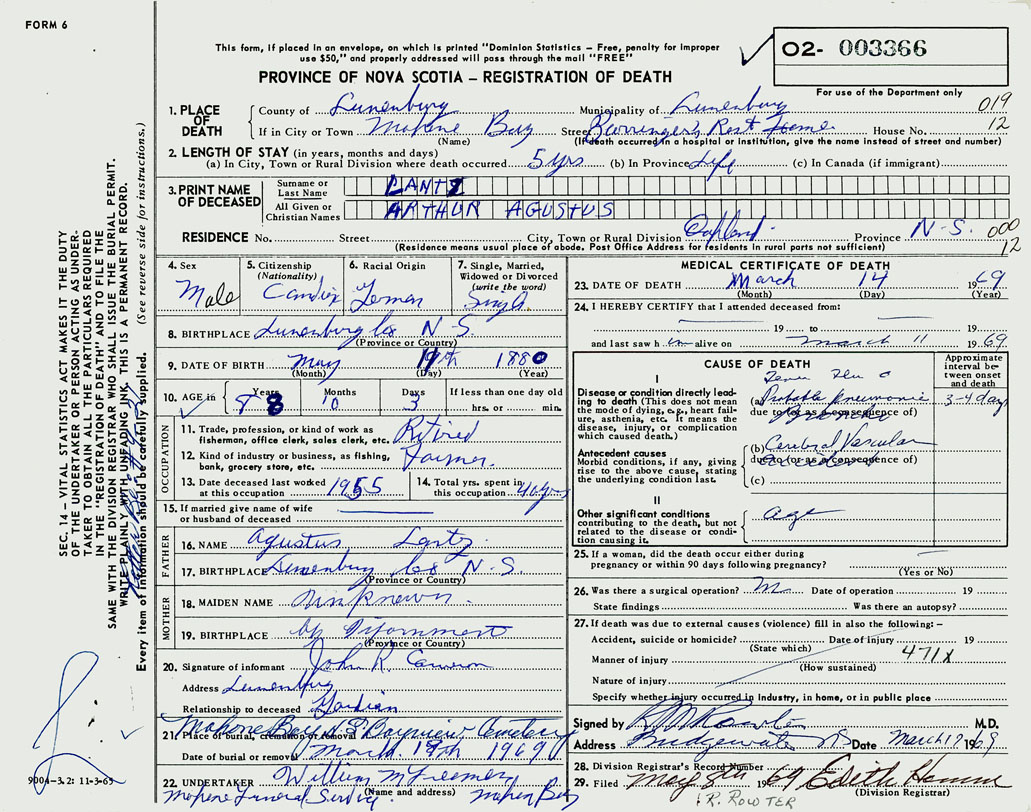 FORM 6
This form, if placed in an envelope, on which is printed "Dominion Statistics – Free, penalty for improper
use $50," and properly addressed will pass through the mail "FREE"
O2- 003366
PROVINCE OF NOVA SCOTIA – REGISTRATION OF DEATH
For use of the Department only
1. PLACE OF DEATH
County of Lunenburg Municipality of Lunenburg 019
If in City or Town Mahone Bay Street Barringer's Rest Home House No. 12
(Name) (If death occurred in a hospital or institution, give the name instead of street and number)
2. LENGTH OF STAY (in years, months and days)
(a) In City, Town or Rural Division where death occurred 5 yrs (b) In Province Life (c) In Canada (if immigrant)
3. PRINT NAME OF DECEASED
Surname or Last Name LANTZ
All Given or Christian Names ARTHUR AGUSTUS
RESIDENCE No. Street City, Town or Rural Division Oakland Province N-S. 000
(Residence means usual place of abode. Post Office Address for residents in rural parts not sufficient) 12
4. Sex Male
5. Citizenship (Nationality)
6. Racial Origin
7. Single, Married, Widowed or Divorced (write the word) Single
8. BIRTHPLACE Lunenburg Co N S.
(Province or Country)
9. DATE OF BIRTH May 11th 1880
(Month) (Day) (Year)
10. AGE in Years 88 Months 10 Days 3 If less than one day old hrs. or min.
OCCUPATION
11. Trade, profession or kind of work as fisherman, office clerk, sales clerk, etc. Retired
12. Kind of industry or business, as fishing, bank, grocery store, etc. Farmer.
13. Date deceased last worked at this occupation 1955
14. Total yrs. spent in this occupation 40 yrs
15. If married give name of wife or husband of deceased
FATHER
16. NAME Agustus Lantz
17. BIRTHPLACE Lunenburg Co N-S.
(Province or Country)
MOTHER
18. MAIDEN NAME Unknown.
19. BIRTHPLACE
(Province or Country)
20. Signature of informant John R. Cameron
Address Lunenburg
Relationship to deceased Gardian
21. Place of burial, cremation or removal Mahone Bay N S Bayview Cemetery
Date of burial or removal March 17th 1969
22. UNDERTAKER William M Freeman
(Name and address)
Mahone Funeral Service Mahone Bay
MEDICAL CERTIFICATE OF DEATH
23. DATE OF DEATH March 14 1969
(Month) (Day) (Year)
24. I HEREBY CERTIFY that I attended deceased from:
19 to 19
and last saw him alive on March 11 1969
CAUSE OF DEATH
Approximate interval between onset and death
I
Disease or condition directly leading to death (This does not mean the mode of dying, e.g., heart failure, asthenia, etc. It means the disease, injury, or complication which caused death.)
(a) Probable pneumonia 3-4 days
due to (or as a consequence of)
Antecedent causes
Morbid conditions, if any, giving rise to the above cause, stating the underlying condition last.
(b) Cerebral Vascular
due to (or as a consequence of)
(c)
II
Other significant conditions contributing to the death, but not related to the disease or condition causing it.
age
25. If a woman, did the death occur either during pregnancy or within 90 days following pregnancy?
(Yes or No)
26. Was there a surgical operation? Date of operation 19
State findings Was there an autopsy?
27. If death was due to external causes (violence) fill in also the following: –
Accident, suicide or homicide? Date of Injury 19
(State which)
Manner of injury 471X
(How sustained)
Nature of injury
Specify whether injury occurred in Industry, in home, or in public place
Signed by M.D.
Address Bridgewater NS Date March 17 1969
28. Division Registrar's Record Number
29. Filed May 8th 1969 Edith
(Division Registrar)
R. ROWTER
9004-3.2: 11-3-65
SEC. 14 – VITAL STATISTICS ACT MAKES IT THE DUTY
OF THE UNDERTAKER OR PERSON ACTING AS UNDER-
TAKER TO OBTAIN ALL THE PARTICULARS REQUIRED
IN THE "REGISTRATION OF DEATH" AND TO FILE THE
SAME WITH THE DIVISION REGISTRAR WHO SHALL ISSUE THE BURIAL PERMIT.
WRITE PLAINLY WITH UNFADING INK, THIS IS A PERMANENT RECORD.
Every item of information should be carefully supplied. (See reverse side for instructions.)